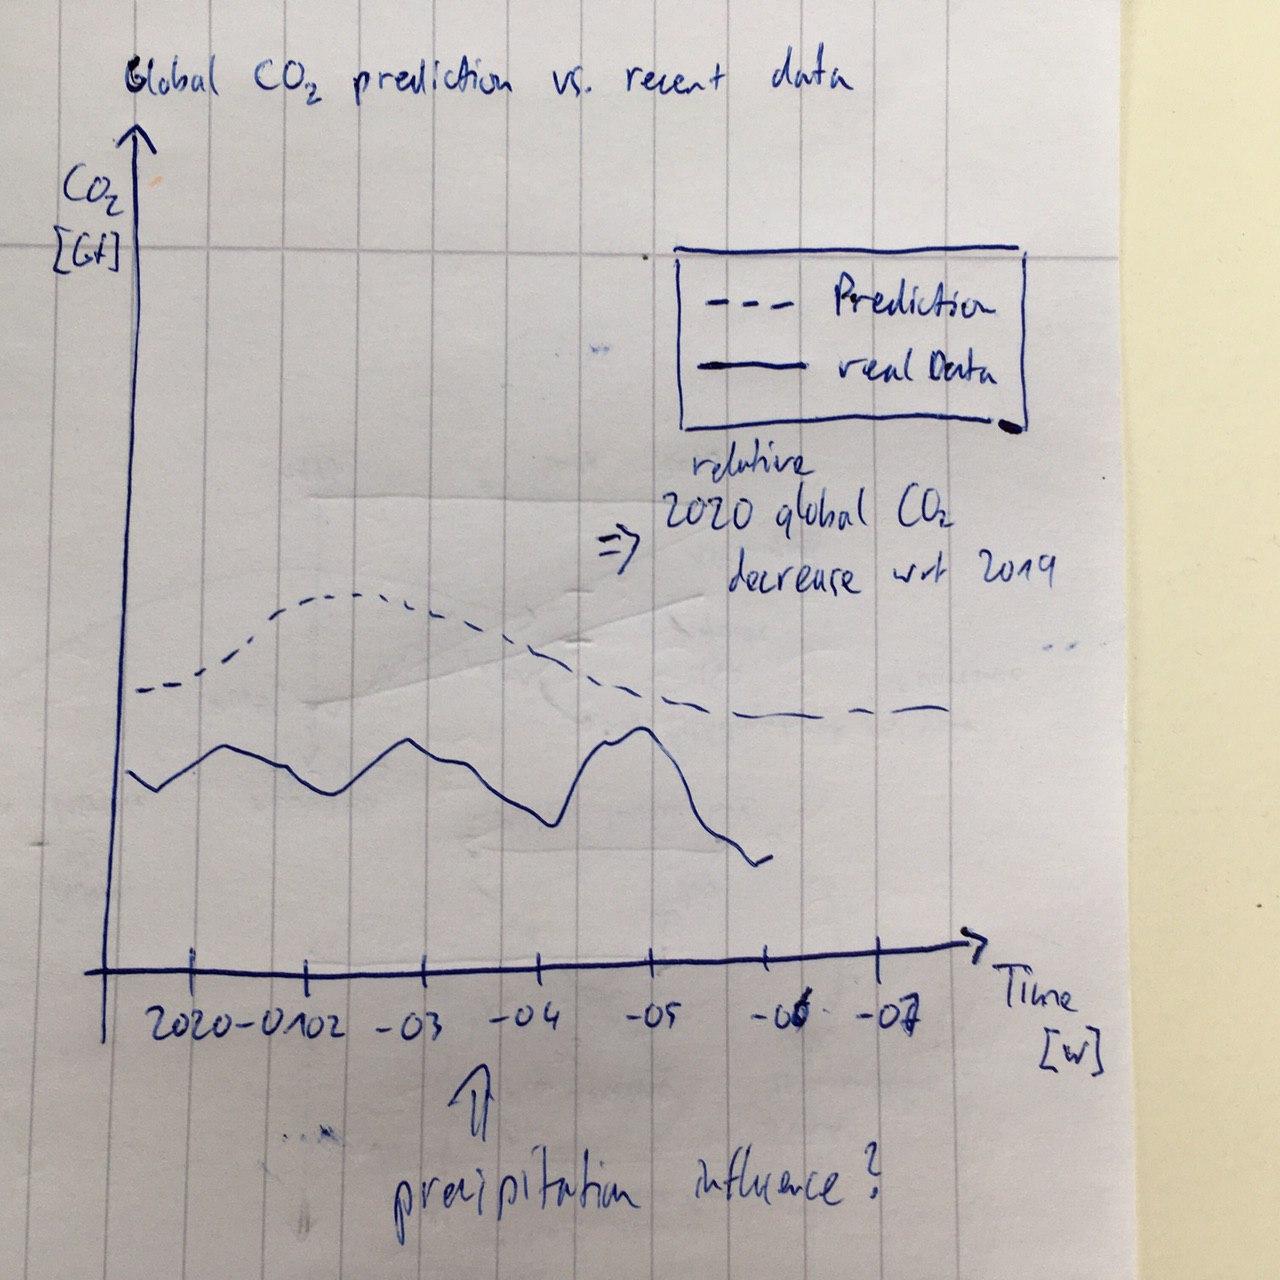 Global CO₂ prediction vs. recent data
CO₂
[Gt]
Prediction
real Data
relative
⇒ 2020 global CO₂
decrease wrt 2019
2020-01 02 -03 -04 -05 -06 -07
Time
[w]
precipitation influence?